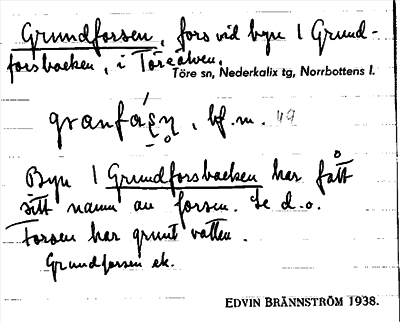 Grundforsen, fors vid byn l Grund-
forsbacken, i Töreälven.
Töre sn, Nederkalix tg, Norrbottens l.
bf. m. 49
Byn l Grundforsbacken har fått
sitt namn av forsen. Se d.o.
Forsen har grunt vatten.
Grundforsen ek.
EDVIN BRÄNNSTRÖM 1938.